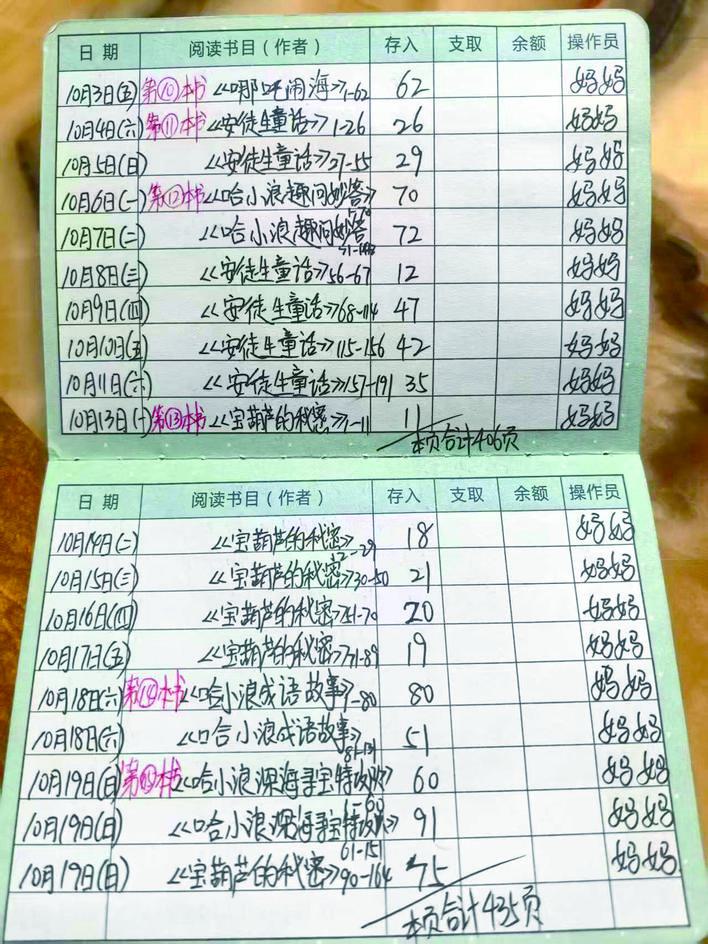 日 期 阅读书目（作者） 存入 支取 余额 操作员
10月3日(五) 第⑩本书 《哪吒闹海》1-62 62 妈妈
10月4日(六) 第⑪本书 《安徒生童话》1-26 26 妈妈
10月5日(日) 《安徒生童话》27-55 29 妈妈
10月6日(一) 第⑫本书 《哈小浪趣问妙答》 70 妈妈
10月7日(二) 《哈小浪趣问妙答 72 妈妈
10月8日(三) 《安徒生童话》56-67 12 妈妈
10月9日(四) 《安徒生童话》68-114 47 妈妈
10月10日(五) 《安徒生童话》115-156 42 妈妈
10月11日(六) 《安徒生童话》157-191 35 妈妈
10月13日(一) 第⑬本书 《宝葫芦的秘密》1-11 11 妈妈
本页合计406页
日 期 阅读书目（作者） 存入 支取 余额 操作员
10月14日(二) 《宝葫芦的秘密》12-29 18 妈妈
10月15日(三) 《宝葫芦的秘密》30-50 21 妈妈
10月16日(四) 《宝葫芦的秘密》51-70 20 妈妈
10月17日(五) 《宝葫芦的秘密》71-89 19 妈妈
10月18日(六) 第⑭本书 《哈小浪成语故事》1-80 80 妈妈
10月18日(六) 《哈小浪成语故事》 51 妈妈
81-131
10月19日(日) 第⑮本书 《哈小浪深海寻宝特攻队》 60 妈妈
1-60
10月19日(日) 《哈小浪深海寻宝特攻队》 91 妈妈
61-151
10月19日(日) 《宝葫芦的秘密》90-164 75 妈妈
本页合计435页